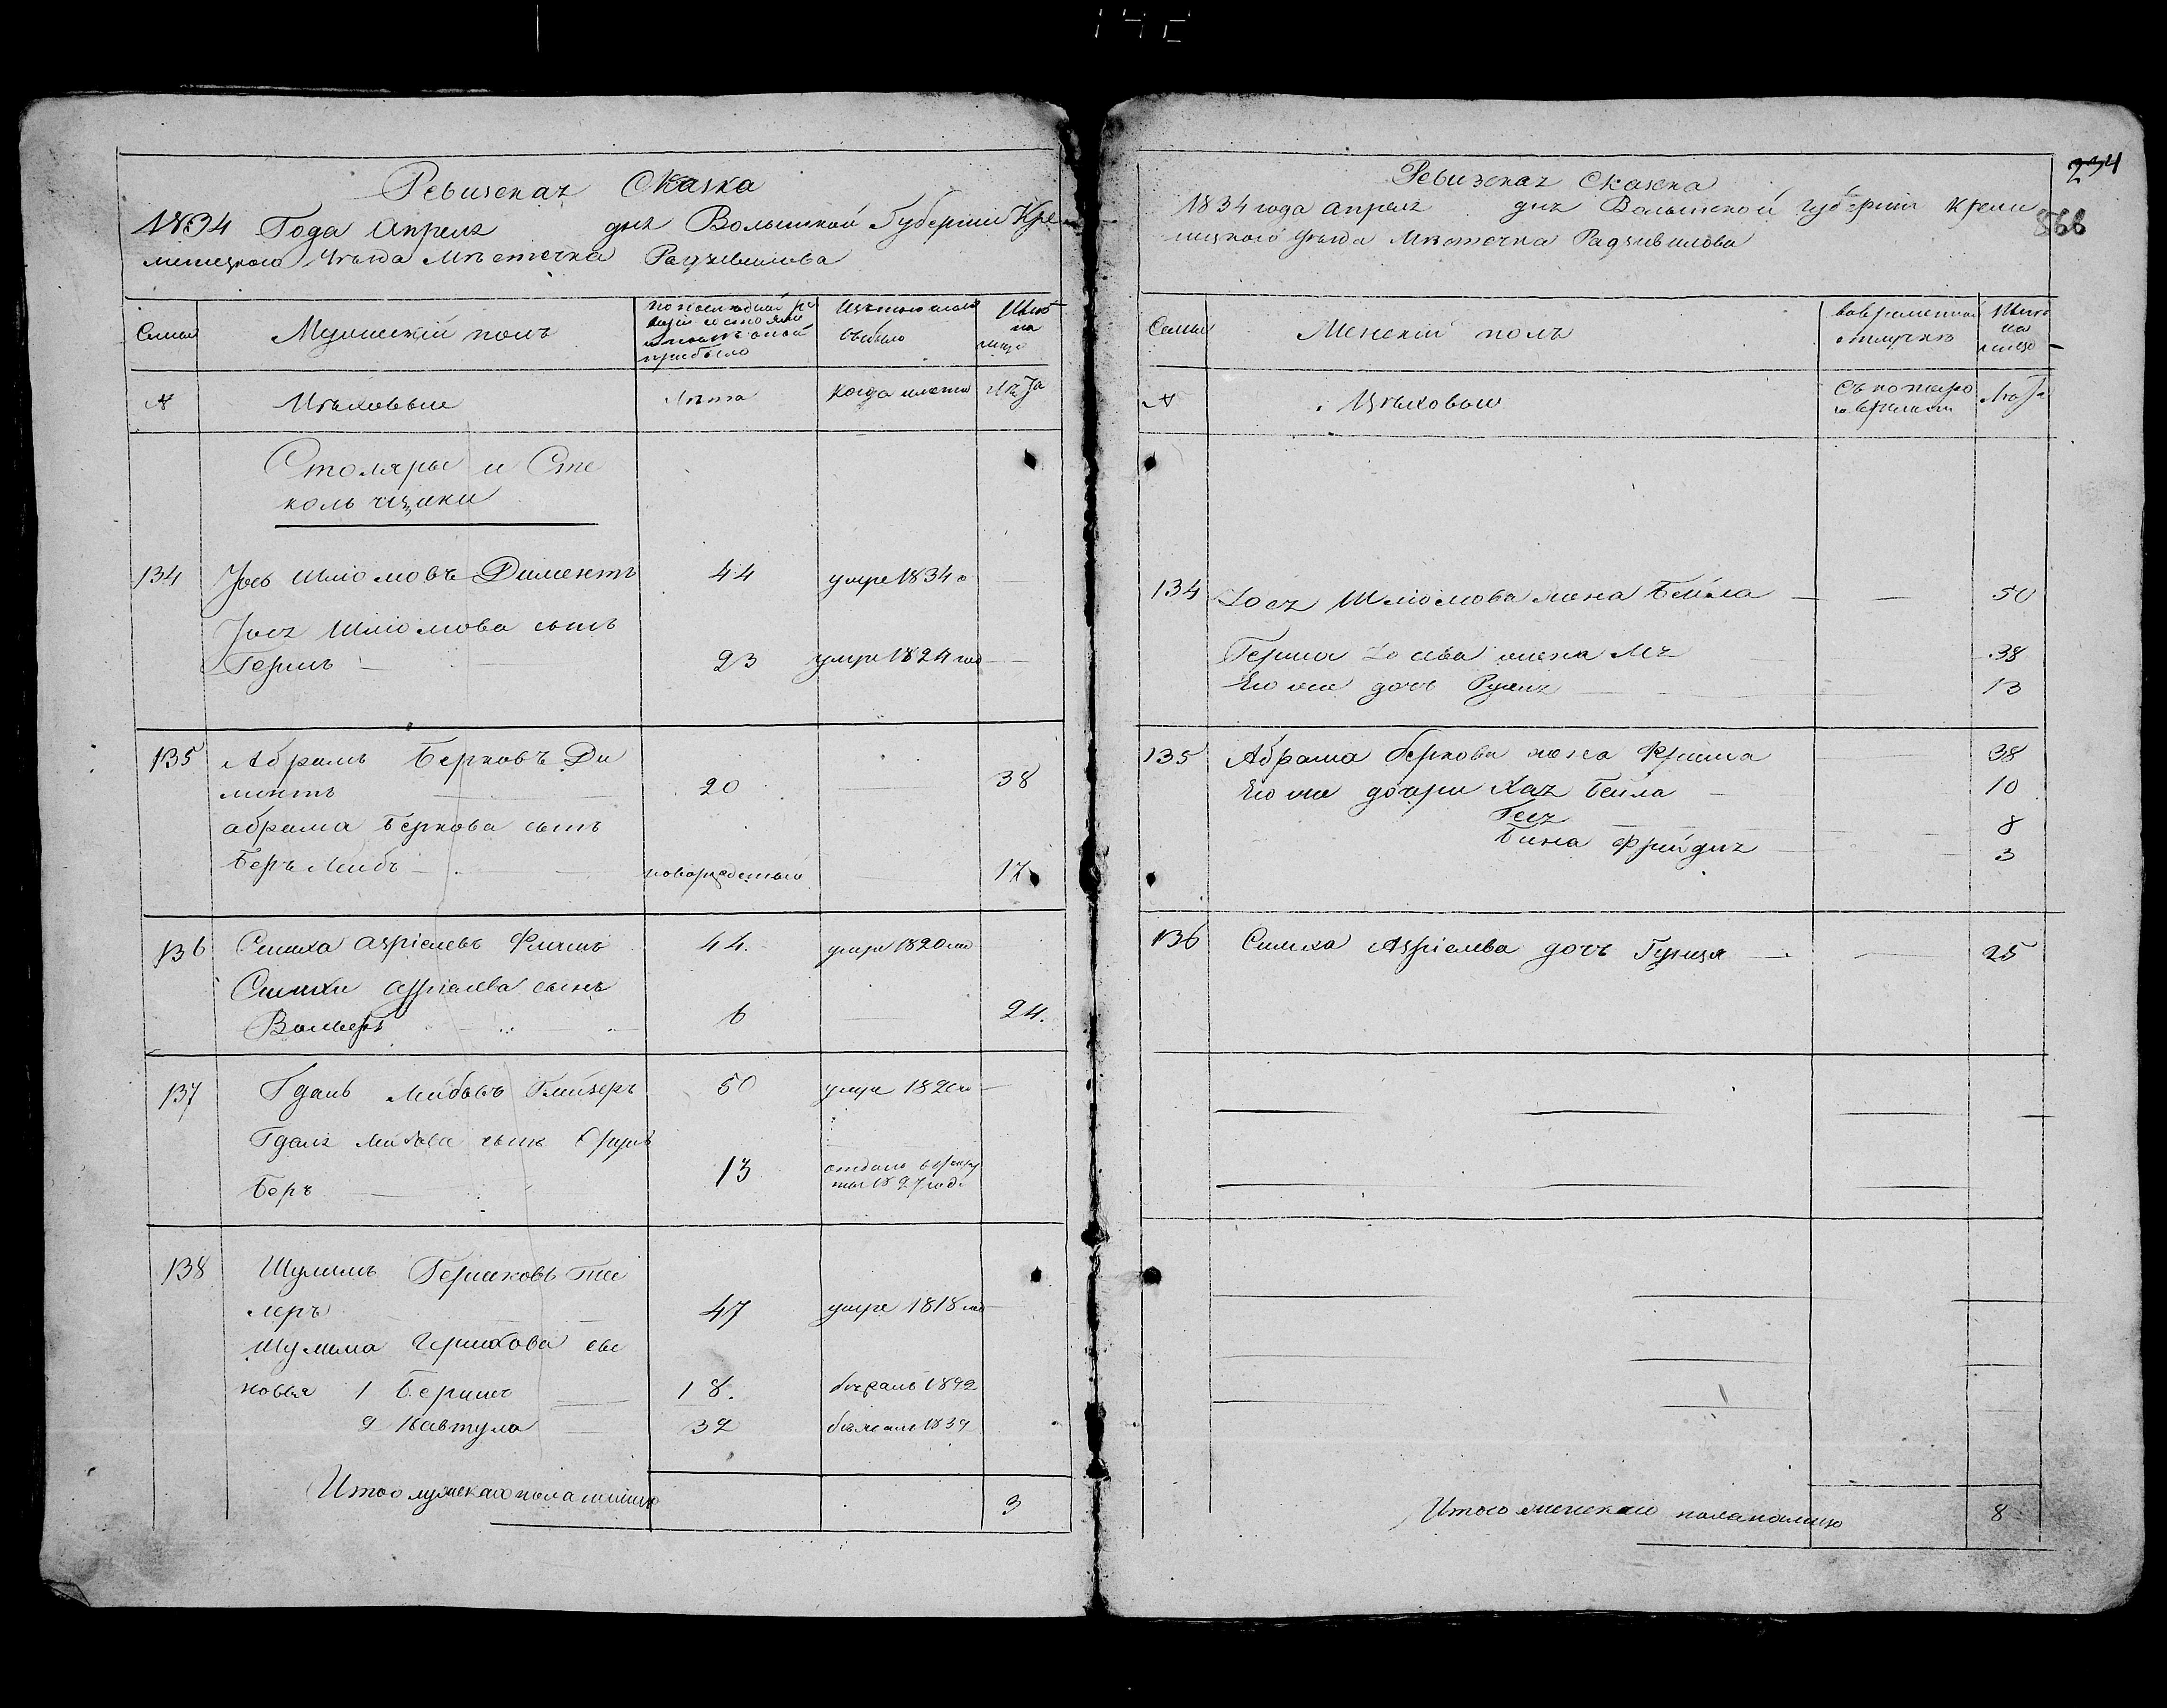 Ревизская Сказка
1834 Года Апреля дня Волынской Губернии Кре
менецкого уезда Местечка Радзивилова
Семьи
Мужеский полъ
по последней ре
визии состояло
и после оной
прибыло
Изъ того числа
выбыло
Ныне
на
лицо
№
Цеховые
Лета
когда имянно
Лета
Столяры и Сте
кольчщики
134 Иось Шлiомовъ Диментъ 44 умре 1834 го
Иося Шлiомова сынъ
Гершъ 23 умре 1824 год
135 Абрамъ Берковъ Ди
ментъ 20 38
абрама Беркова сынъ
Беръ Лейбъ новорожденный 17
136 Симха Азрiелевъ 44 умре 1820 го
Симхи Азрiелева сынъ
6 24.
137 Гдаль Лейбовъ 50 умре
Гдаля Лейбова сынъ
Беръ 13 отданъ в рекру
ты 1827 года
138 Шулимъ Гершковъ
леръ 47 умре 1818 го
Шулима Гершкова сы
новья 1 Бериш 18.
2 32
Итого мужеска пола налицо 3
142
234
866
Ревизская Сказка
1834 года апреля дня Волынской губернии Креме
нецкого уезда Местечка Радзивилова
Семьи
Женский полъ
во временной
отлучке
Ныне
на
лицо
№
Цеховые
Съ которого
времени
Лета
134 Иося Шлiомова жена Бейла 50
Герша Иосева жена 38
Его же дочь 13
135 Абрама Беркова жена Фрима 38
Его же дочери Хая Бейла 10
8
Бина Фрейдя 3
136 Симха Азрiелева дочь 25
Итого женского пола налицо 8